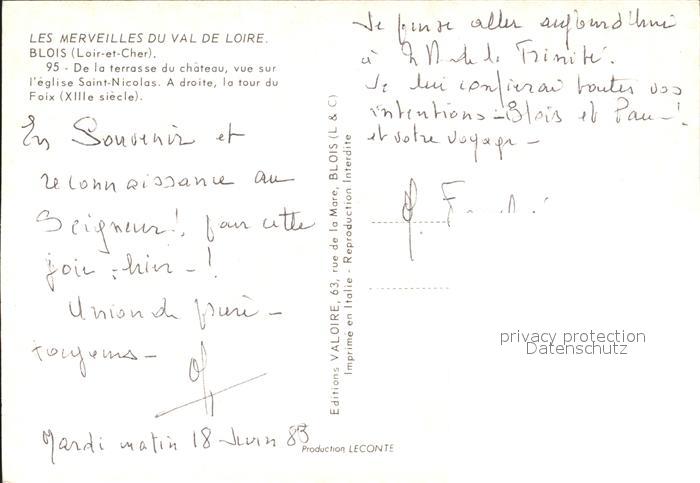 LES MERVEILLES DU VAL DE LOIRE.
BLOIS (Loir-et-Cher).
95 - De la terrasse du château, vue sur
l'église Saint-Nicolas. A droite, la tour du
Foix (XIIIe siècle).
En Souvenir et
reconnaissance au
Seigneur!, pour cette
joie - hier - !
Union de prière -
toujours -
Mardi matin 18 Juin 85
Editions VALOIRE, 63, rue de la Mare, BLOIS (L & C)
Imprimé en Italie - Reproduction Interdite
Production LECONTE
Je pense aller aujourd'hui
à ND de la Trinité.
Je lui confierai toutes vos
intentions - Blois et Pau - !
et votre voyage -
privacy protection
Datenschutz